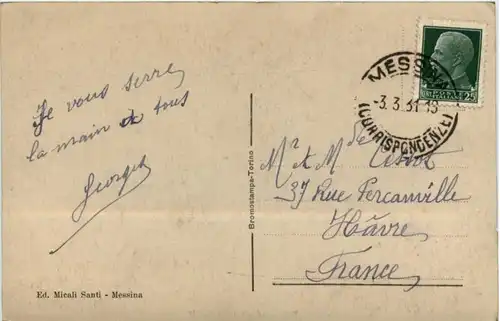 Je vous serre
la main à tous
Georges
Ed. Micali Santi - Messina
Bromostampa-Torino
MESSINA
-3.3.31.19
(CORRISPONDENZE)
25
Mr et Mme
37 Rue Percanville
Hâvre
France